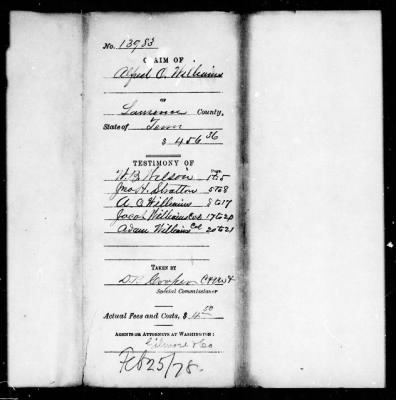 No. 13983
CLAIM OF
Alfred O. Williams
OF
Lawrence County,
State of Tenn
$ 456 36
TESTIMONY OF
Page.
W. B. Wilson 1 to 5
Jno. H. Stratton 5 to 8
A. O. Williams 8 to 17
Jacob Williams Col 17 to 20
Adam Williams Col 20 to 21
TAKEN BY
D. R. Cooper
Special Commissioner
Actual Fees and Costs, $ 4 50
AGENTS OR ATTORNEYS AT WASHINGTON:
Gilmore & Co
Feb 25/78.